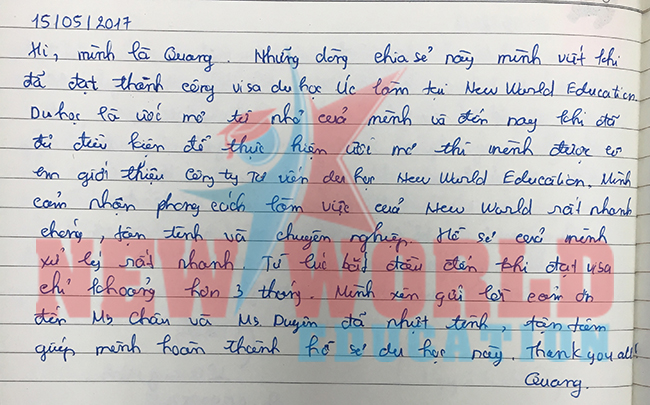 15/05/2017
Hi, mình là Quang. Những dòng chia sẻ này mình viết khi
đã đạt thành công visa du học Úc làm tại New World Education.
Du học là ước mơ từ nhỏ của mình và đến nay khi đã
đủ điều kiện để thực hiện ước mơ thì mình được cơ
em giới thiệu công ty Tư vấn du học New World Education. Mình
cảm nhận phong cách làm việc của New World rất nhanh
chóng, tận tình và chuyên nghiệp. Hồ sơ của mình
xử lý rất nhanh. Từ lúc bắt đầu đến khi đạt visa
chỉ khoảng hơn 3 tháng. Mình xin gửi lời cảm ơn
đến Ms Châu và Ms. Duyên đã nhiệt tình, tận tâm
giúp mình hoàn thành hồ sơ du học này. Thank you all!
Quang.
NEW WORLD
EDUCATION